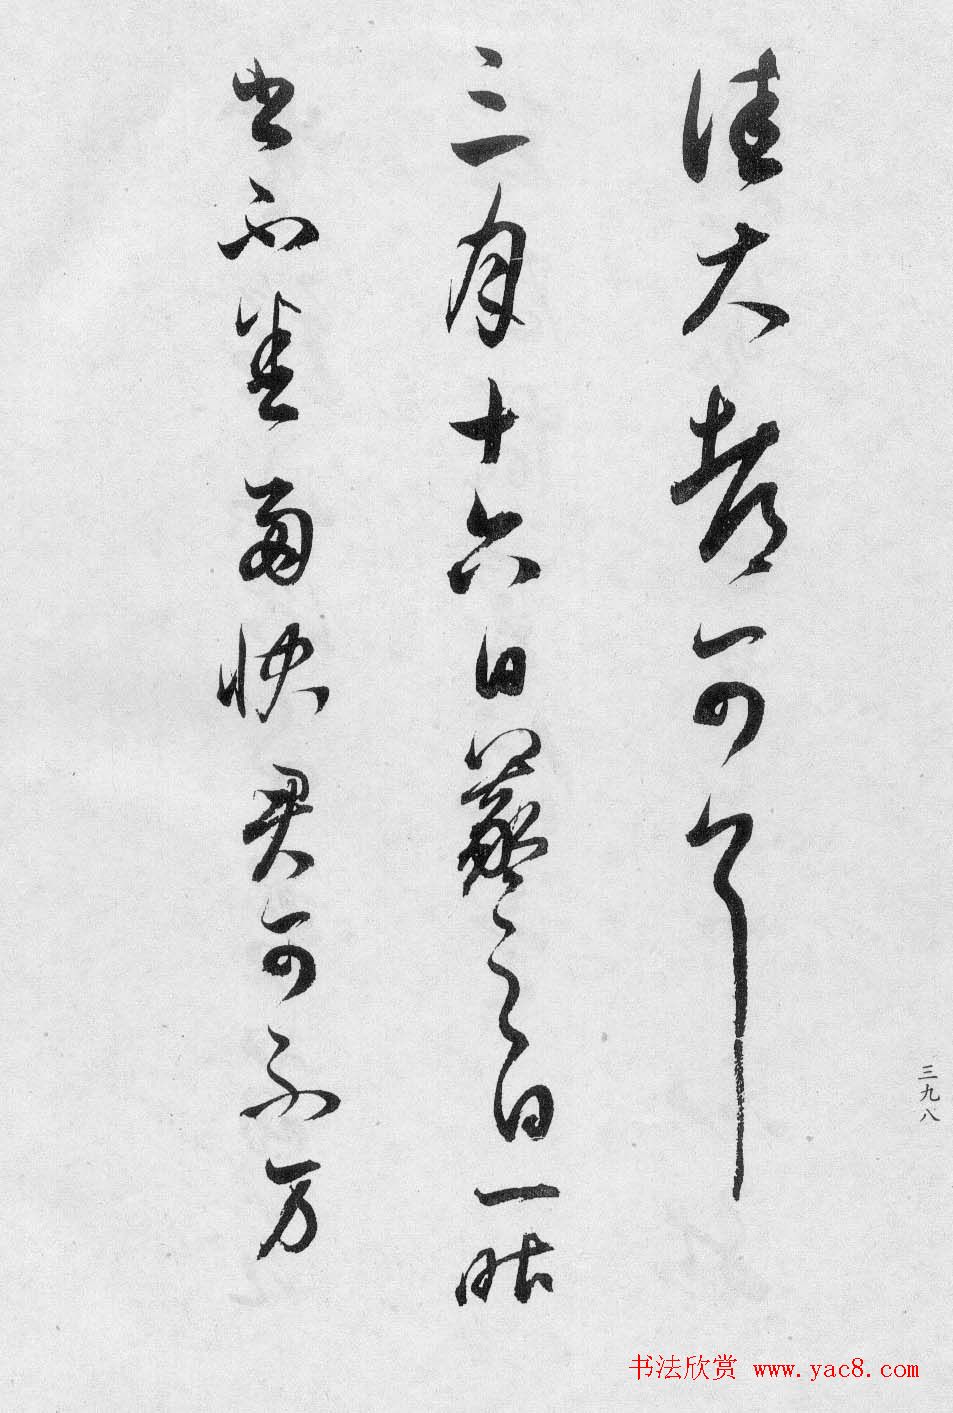 佳大都可耳
三月十六日羲之白一昨
書不悉雨快君可不万
三九八
书法欣赏 www.yac8.com